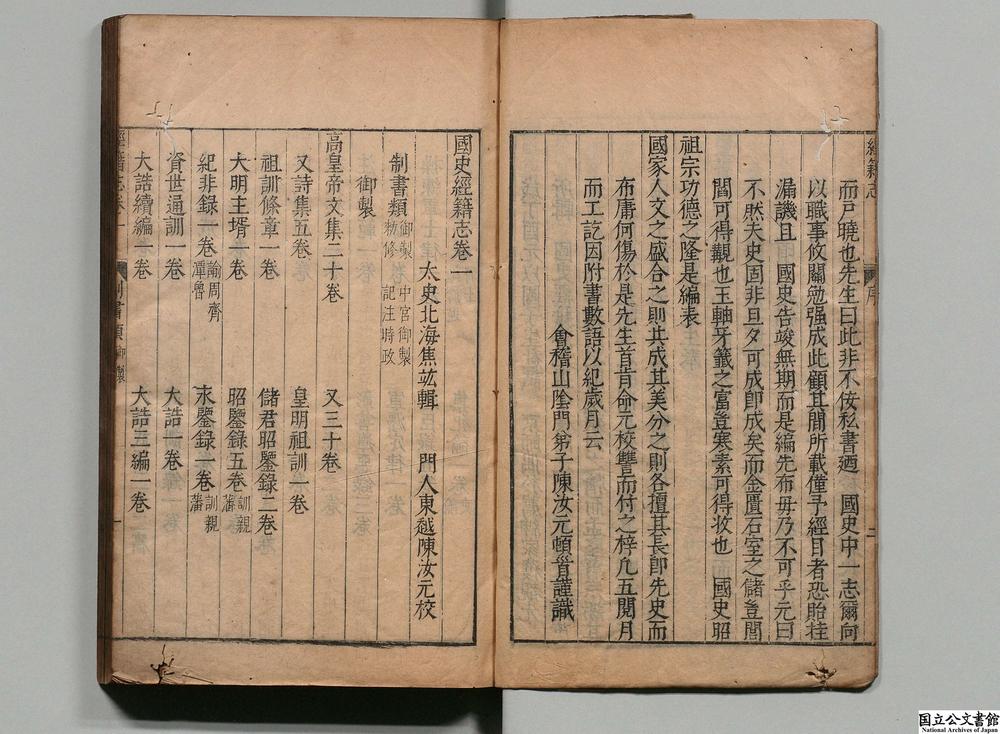 經籍志
序
二
而戸曉也先生曰此非不佞私書廼　國史中一志爾向
以職事攸關勉强成此顧其間所載僅予經目者恐貽挂
漏譏且　國史告竣無期而是編先布毋乃不可乎元曰
不然夫史固非旦夕可成卽成矣而金匱石室之儲豈閭
閻可得觀也玉軸牙籤之富豈寒素可得攷也　國史昭
祖宗功德之隆是編表
國家人文之盛合之則共成其美分之則各擅其長卽先史而
布庸何傷於是先生首肯命元校讐而付之梓凡五閱月
而工訖因附書數語以紀歲月云
會稽山陰門弟子陳汝元頓首謹識
國史經籍志卷一
太史北海焦竑輯　門人東越陳汝元校
制書類　御製　中宮御製　勑修　記注時政
御製
高皇帝文集二十卷　又三十卷
又詩集五卷　皇明祖訓一卷
祖訓條章一卷　儲君昭鑒錄二卷
大明主壻一卷　昭鑒錄五卷　訓親藩
紀非錄一卷　諭周齊潭魯　永鑒錄一卷　訓親藩
資世通訓一卷　大誥一卷
大誥續編一卷　大誥三編一卷
經籍志卷一
制書類　御製
一
国立公文書館
National Archives of Japan